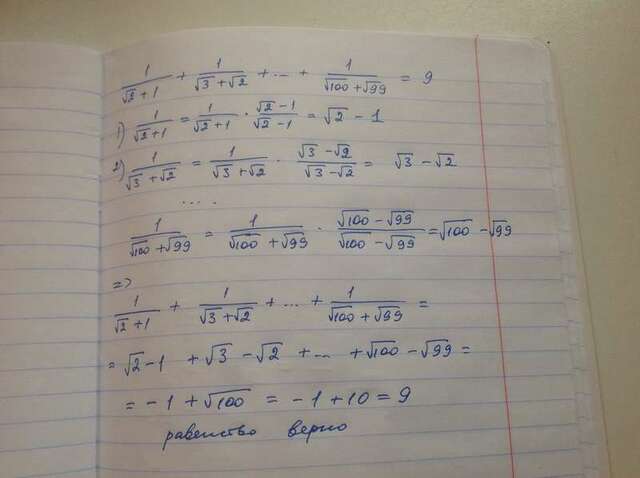 1/(√2+1) + 1/(√3+√2) + ... + 1/(√100+√99) = 9
1) 1/(√2+1) = 1/(√2+1) · (√2-1)/(√2-1) = √2 - 1
2) 1/(√3+√2) = 1/(√3+√2) · (√3-√2)/(√3-√2) = √3-√2
....
1/(√100+√99) = 1/(√100+√99) · (√100-√99)/(√100-√99) = √100-√99
=>
1/(√2+1) + 1/(√3+√2) + ... + 1/(√100+√99) =
= √2-1 + √3-√2 + ... + √100-√99 =
= -1+√100 = -1+10 = 9
равенство верно